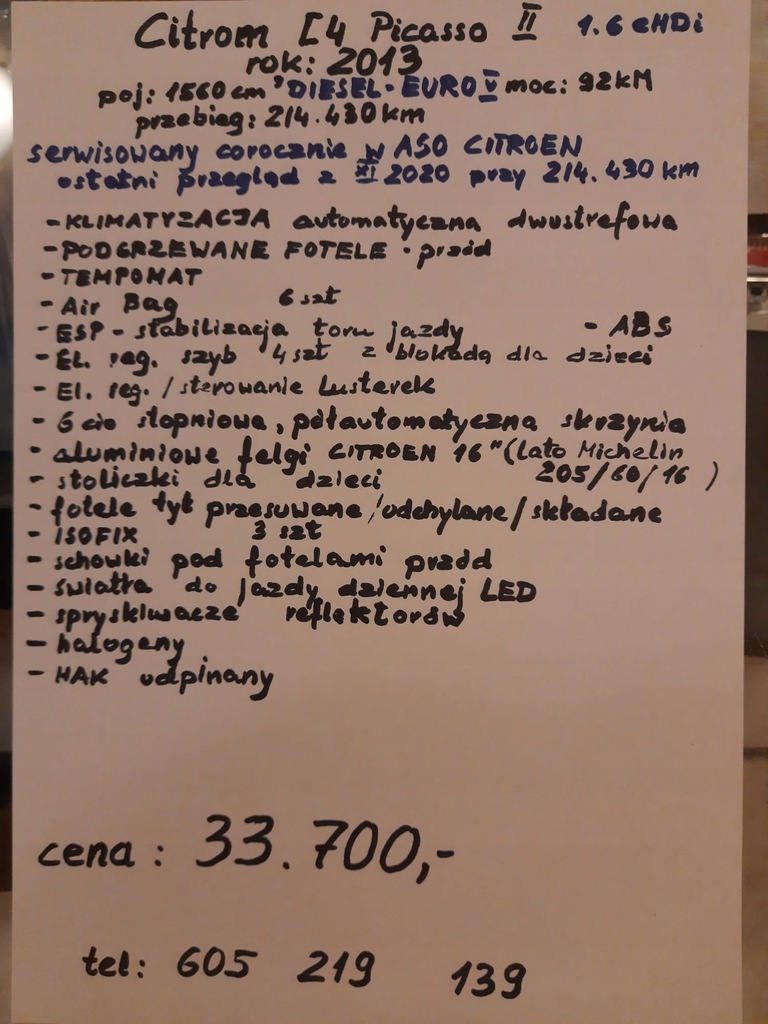 Citrom C4 Picasso II 1.6 eHDi
rok: 2013
poj: 1560 cm³ DIESEL - EURO V moc: 92KM
przebieg: 214.430 km
serwisowany corocznie w ASO CITROEN
ostatni przegląd z XI 2020 przy 214.430 km
- KLIMATYZACJA automatyczna dwustrefowa
- PODGRZEWANE FOTELE - przód
- TEMPOMAT
- Air Bag 6 szt
- ESP - stabilizacja toru jazdy - ABS
- EL. reg. szyb 4 szt z blokadą dla dzieci
- El. reg. / sterowanie Lusterek
- 6 cio stopniowa, półautomatyczna skrzynia
- aluminiowe felgi CITROEN 16" (lato Michelin
205/60/16)
- stoliczki dla dzieci
- fotele tył przesuwane/odchylane/składane
- ISOFIX 3 szt
- schowki pod fotelami przód
- światła do jazdy dziennej LED
- spryskiwacze reflektorów
- halogeny
- HAK odpinany
cena : 33.700,-
tel: 605 219 139